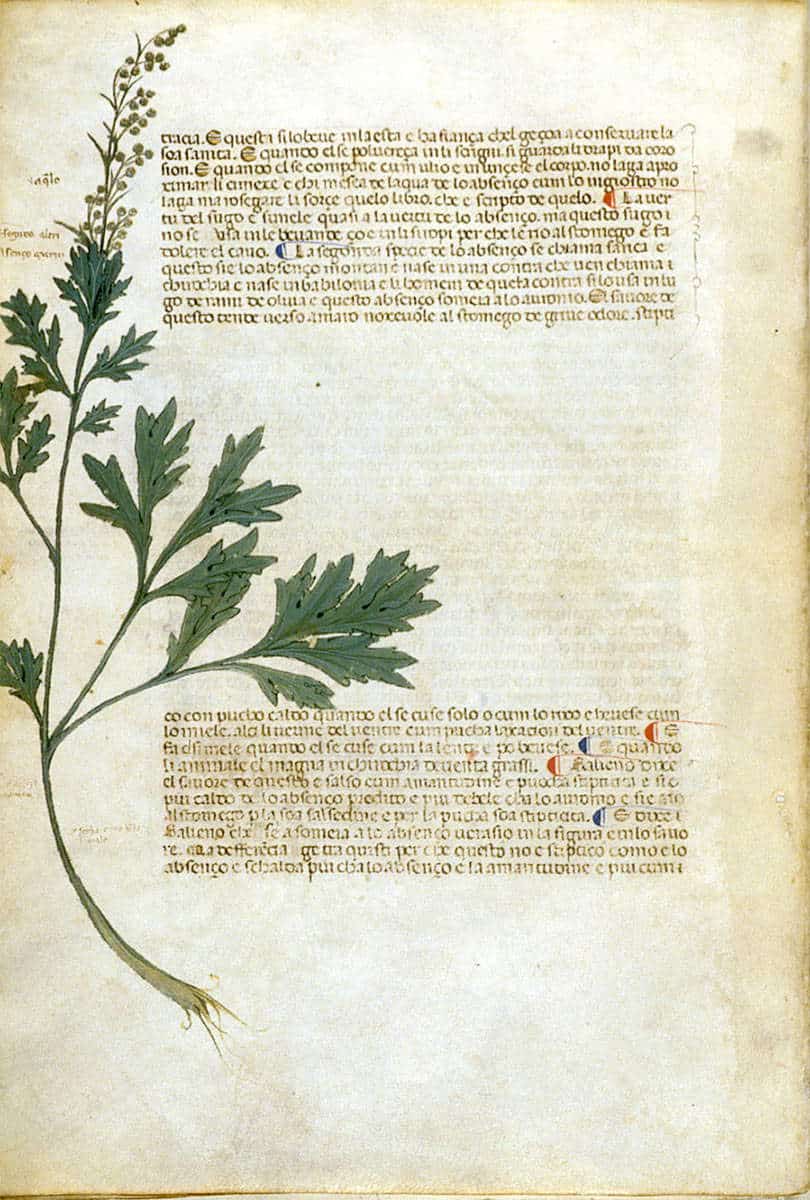 tracia. E questa si lo beve in la esta e ha fiança ch'el geçoa a conservare la
soa sanita. E quando el se polvereça in li scrigni, si guarda li drapi da coro
sion. E quando el se compone cum olio e in unçese el corpo, no laga apro
ximar li cimexe e chi mesea de laqua de lo absenço cum lo ingiostro no
laga ma rosegare li sorçe quelo libro, che e scripto de quelo. ¶ La ver
tu del sugo e simele quasi a la vertu de lo absenço. ma questo sugo i
no se usa in le bevande ço e in li suopi per che le no al stomego e fa
dolere el cavo. ¶ La segonda specie de lo absenço se chiama santica e
questo sie lo absenço montan e nase in una contra che ven chiama i
churchia e nase in babilonia e li homeni de questa contra si lo usa in lu
go de rami de oliva e questo absenço someia a lo avrono. El savore de
questo tende verso amaro noxevole al stomego de grave odore. stipti
co con pucho caldo quando el se cuse solo o cum lo rixo e bevese cum
lo miele, alci li verme del ventre cum pucha laxacion del ventre. ¶ E
fa el simele quando el se cuse cum la lente e po bevese. ¶ E quando
li animale el magna in churchia deventa grassi. ¶ Galieno dixe
el savore de questo e salso cum amaritudine e pucha stipticita e sie
piu caldo de lo absenço predito e piu debele cha lo avrono e sie
al stomego p la soa salsedine e per la pucha soa stipticita. ¶ E dixe i
Galieno che se asomeia a lo absenço verasio in la figura e in lo savo
re. Ma la defferẽcia ge tra questi per che questo no e stiptico como e lo
absenço e schalda piu cha lo absenço e la amaritudine e piu cum i